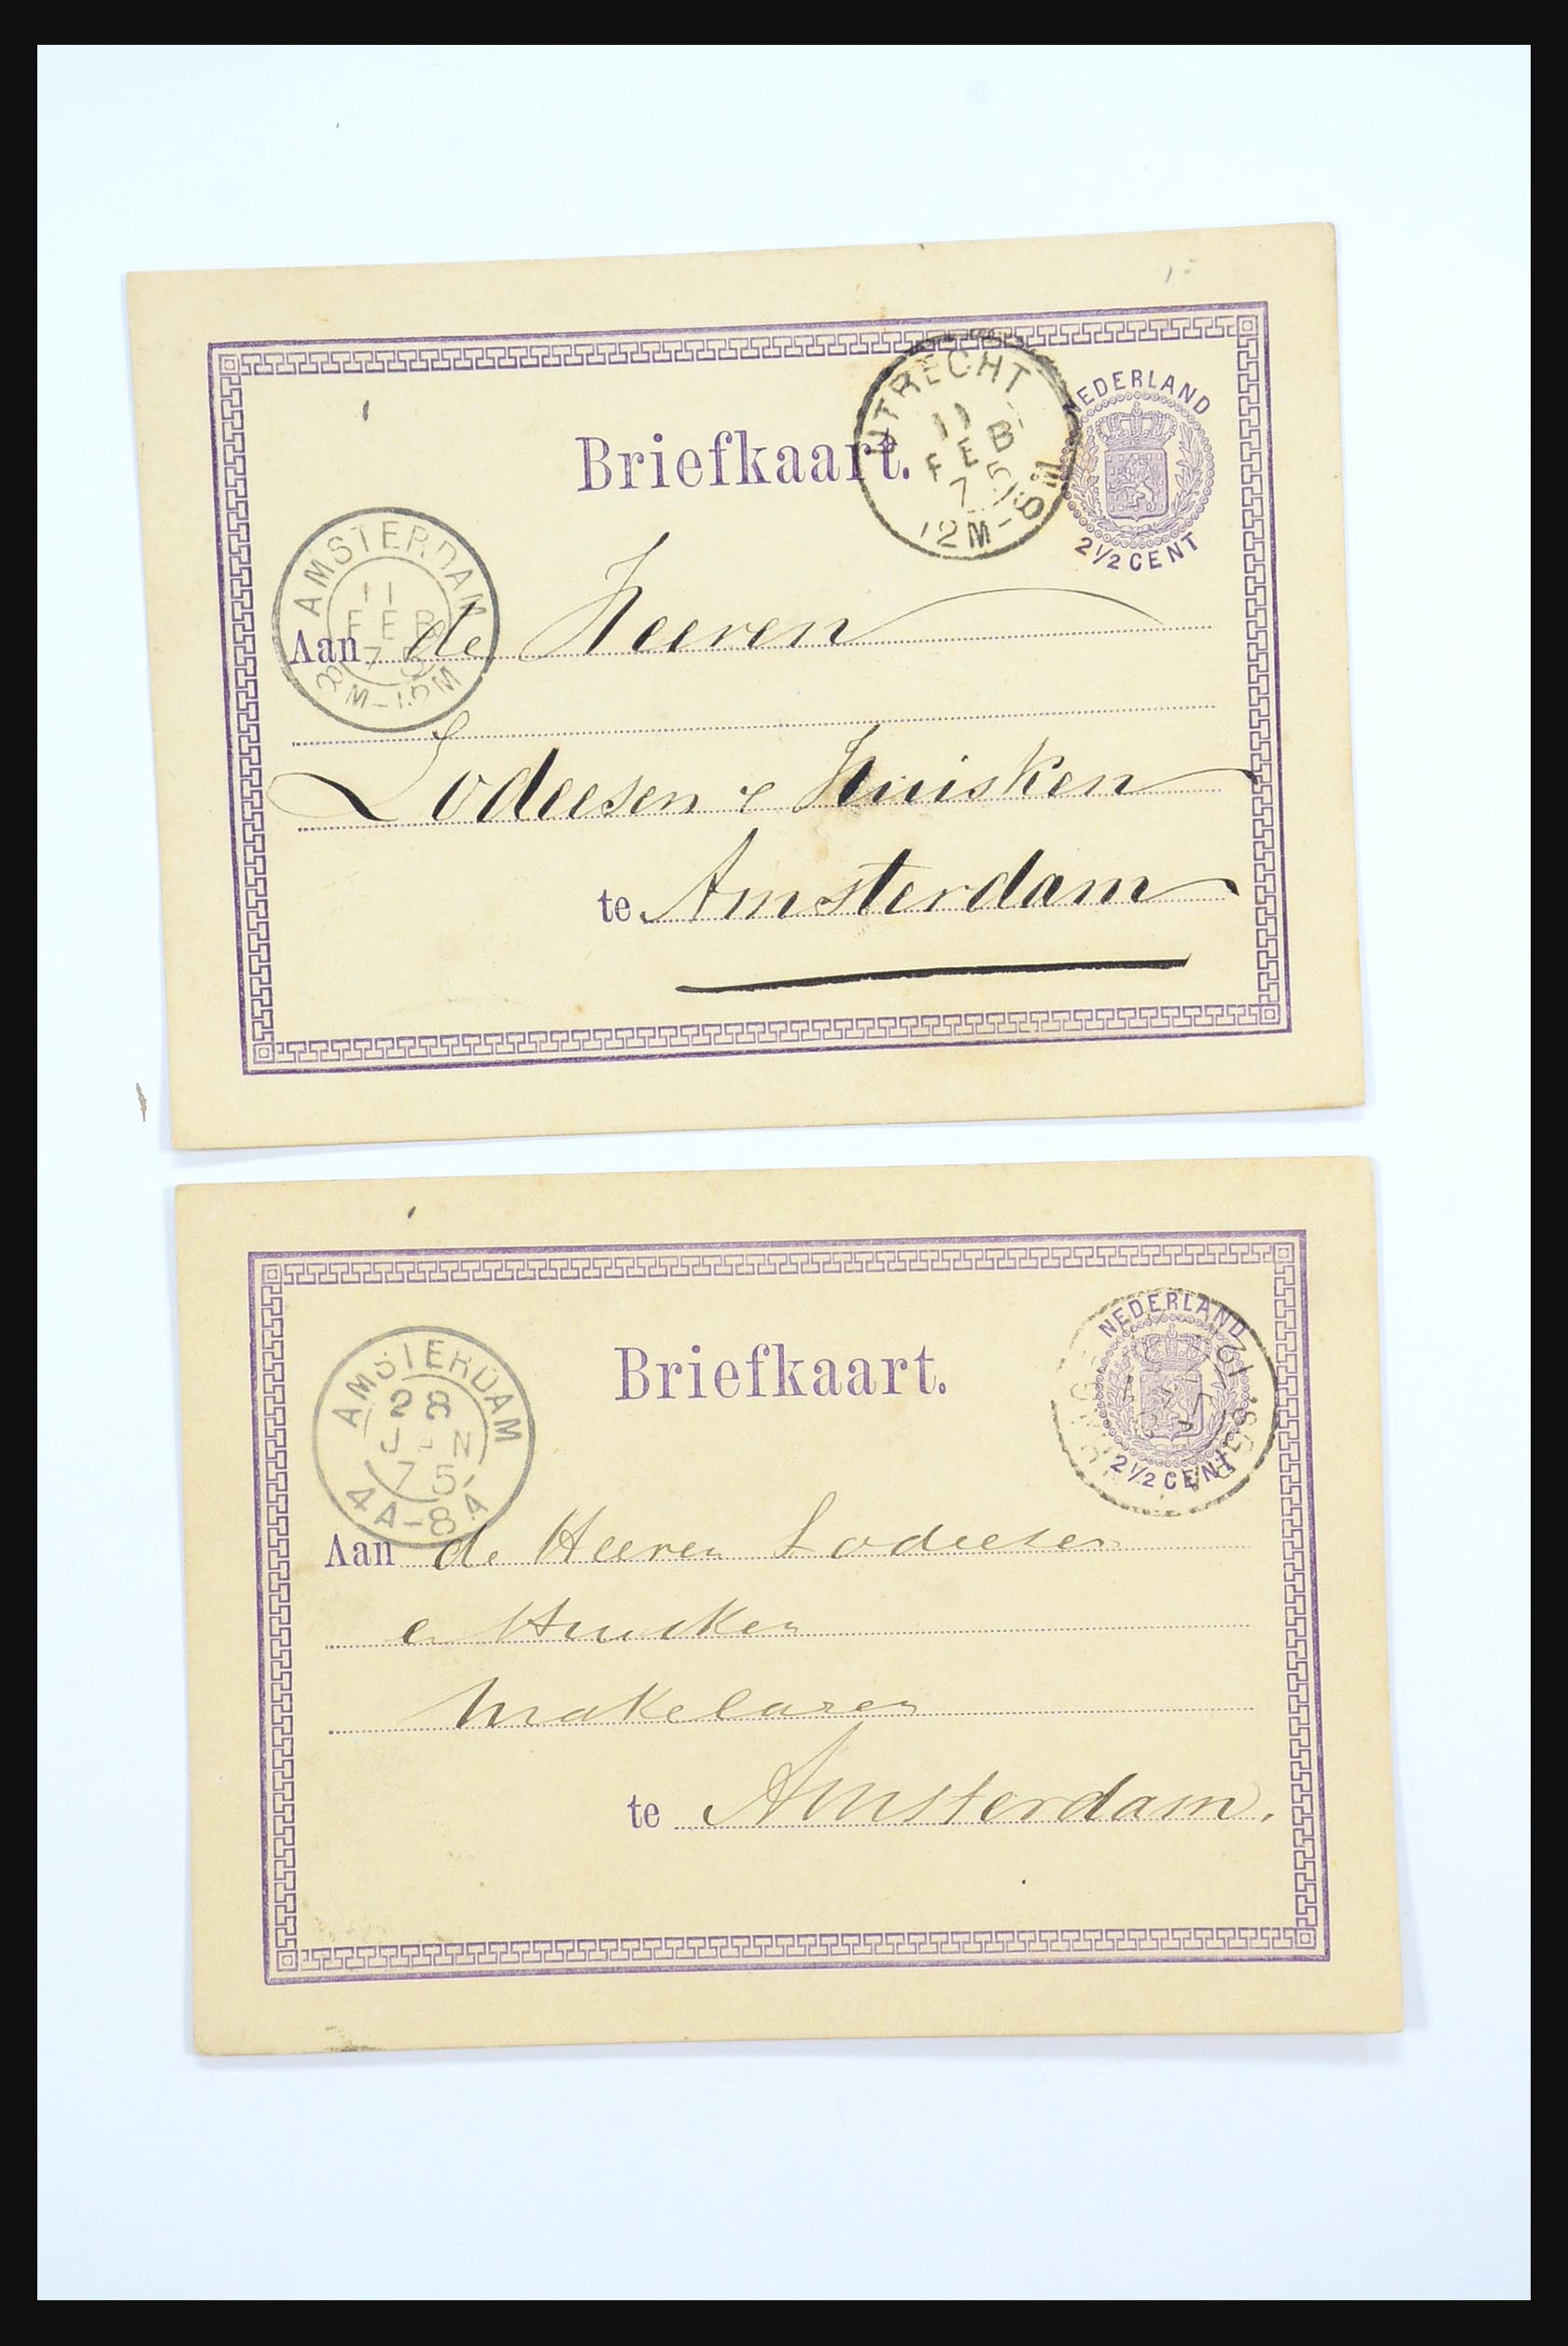 UTRECHT
11
FEB
75
12M-8M
NEDERLAND
2½ CENT
Briefkaart.
AMSTERDAM
11
FEB
75
8M-12M
Aan de Heeren
Lodeesen & Huisken
te Amsterdam
NEDERLAND
2½ CENT
Briefkaart.
AMSTERDAM
28
75
4A-8A
Aan de Heeren Lodeesen
en Huisken
Makelaren
te Amsterdam.